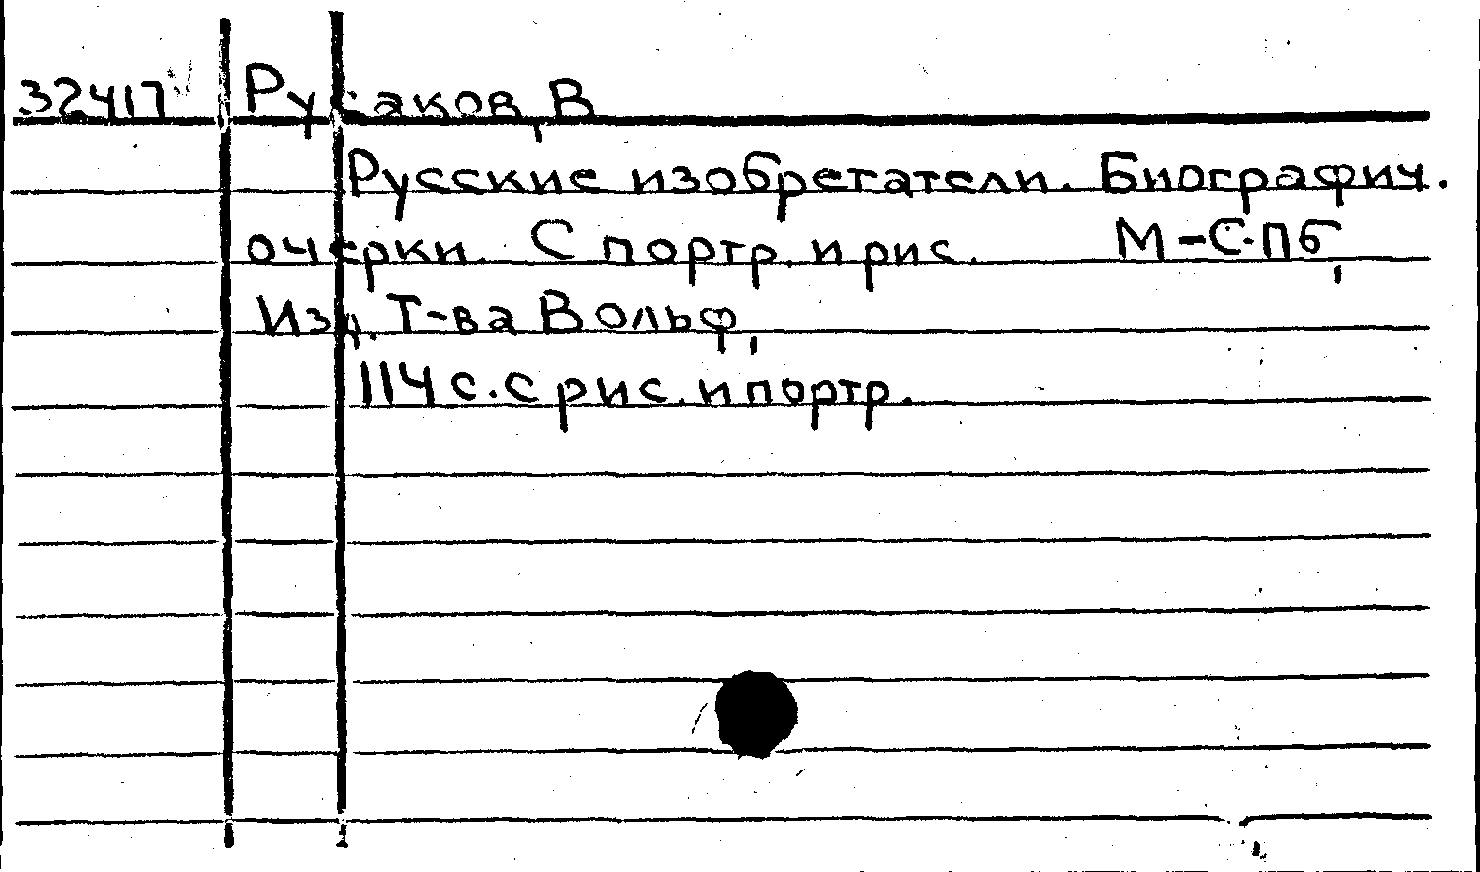 32417 Русаков, В
Русские изобретатели. Биографич.
очерки. С портр. и рис. М-С-Пб,
Изд. Т-ва Вольф,
114 с. с рис. и портр.